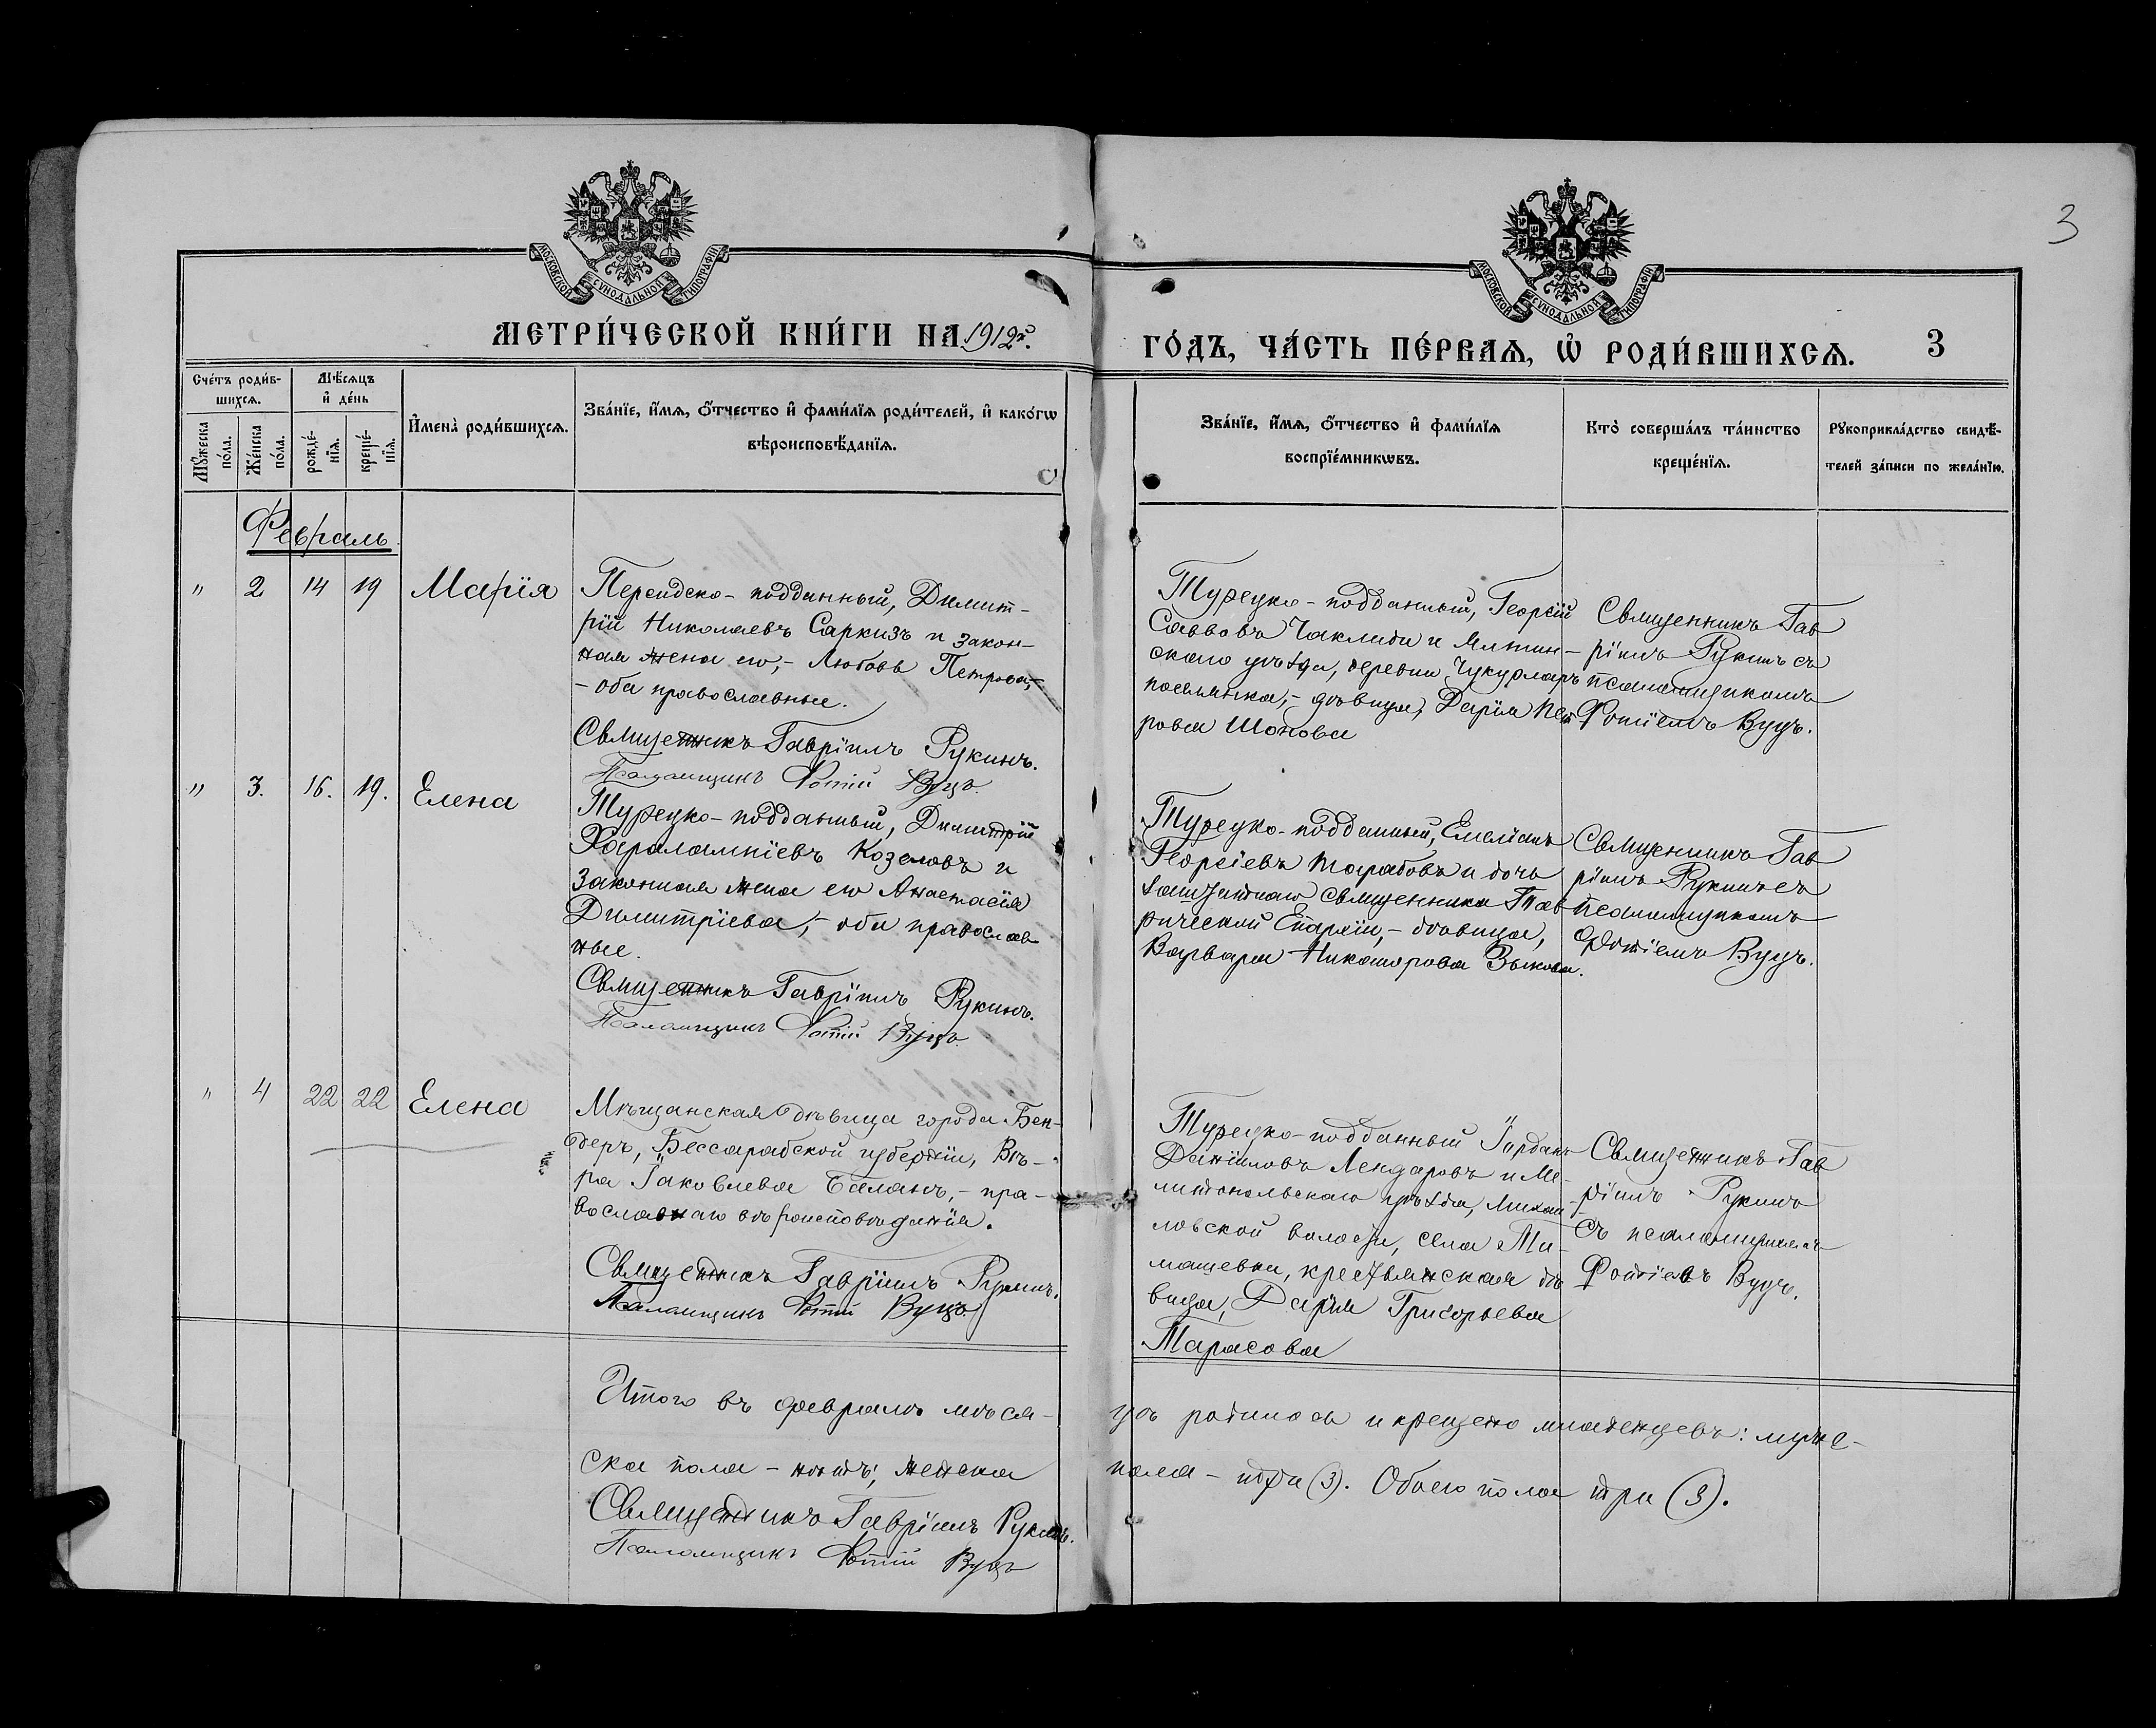 3
МОСКОВСКОЙ СѴНОДАЛЬНОЙ ТИПОГРАФІИ
МОСКОВСКОЙ СѴНОДАЛЬНОЙ ТИПОГРАФІИ
МЕТРИ́ЧЕСКОЙ КНИ́ГИ НА 1912й.
ГО́ДЪ, ЧА́СТЬ ПЕ́РВАѦ, Ѡ҆ РОДИ́ВШИХСѦ. 3
Сче́тъ роди́в-
шихсѧ.
Мꙋ́жеска по́ла.
Же́нска по́ла.
Мѣ́сѧцъ
и҆ де́нь
рожде́-
нїѧ.
креще́-
нїѧ.
И҆мена̀ роди́вшихсѧ.
Зва́нїе, и҆́мѧ, ѻ҆́тчество и҆ фами́лїѧ роди́телей, и҆ како́гѡ
вѣроисповѣ́данїѧ.
Зва́нїе, и҆́мѧ, ѻ҆́тчество и҆ фами́лїѧ
воспрїе́мникѡвъ.
Кто̀ соверша́лъ та́инство
креще́нїѧ.
Рꙋкоприкла́дство свидѣ́-
телей за́писи по жела́нїю.
Февраль.
" 2 14 19 Марія
Персидско-подданный, Димит-
рій Николаевъ Саркизъ и закон-
ная жена его, - Любовь Петрова,
- оба православные.
Священникъ Гавріилъ Рукинъ.
Псаломщикъ Фотій Вуцъ.
Турецко-подданный, Георгій
Саввовъ Чаклиди и Ялтин-
скаго уѣзда, деревни Чукурларъ
поселянка, - дѣвица, Дарія Пет
ровна Шопова
Священникъ Гав
ріилъ Рукинъ съ
псаломщикомъ
Фотіемъ Вуцъ.
" 3. 16. 19. Елена
Турецко-подданный, Димитрій
Хараламніевъ Козеловъ и
законная жена его Анастасія
Димитріева, - оба православ
ные.
Священникъ Гавріилъ Рукинъ.
Псаломщикъ Фотій Вуцъ.
Турецко-подданный, Емеліанъ
Георгіевъ Тарабовъ и дочь
заштатнаго священника Тав
рической Епархіи, - дѣвица,
Варвара Никанорова Зыкова.
Священникъ Гав
ріилъ Рукинъ съ
псаломщикомъ
Фотіемъ Вуцъ.
" 4 22 22 Елена
Мѣщанская дѣвица города Бен-
деръ, Бессарабской губерніи, Вѣ-
ра Іаковлева Баланъ, - пра-
вославнаго вѣроисповѣданія.
Священникъ Гавріилъ Рукинъ.
Псаломщикъ Фотій Вуцъ.
Турецко-подданный Іорданъ
Даніиловъ Лендаровъ и Ме-
литопольскаго уѣзда, Михай-
ловской волости, села Ти-
машевки, крестьянская дѣ
вица, Дарія Григорьева
Тарасова
Священникъ Гав
ріилъ Рукинъ
съ псаломщикомъ
Фотіемъ Вуцъ.
Итого въ февралѣ мѣся-
цѣ родилось и крещено младенцевъ: муже-
ска пола - нѣтъ; женска
пола - три (3). Обоего пола три (3).
Священникъ Гавріилъ Рукинъ.
Псаломщикъ Фотій Вуцъ